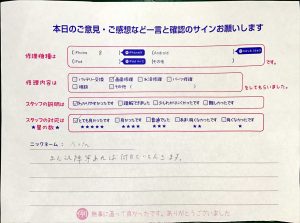 本日のご意見・ご感想など一言と確認のサインお願いします
修理機種は
iPhone 8
Android
iPad
その他
です。
修理内容は
バッテリー交換 画面修理 水没修理 パーツ修理
相談 その他(
)をしてもらいました。
スタッフの説明は
わかりやすかった 理解できました 少しわかりにくかった 難しかった
スタッフの対応は
★星の数★
とても良かった 良かった 普通でした あまり良くなかった 良くなかった
★★★★★ ★★★★ ★★★ ★★ ★
ニックネーム:
無事に直って良かったです。ありがとうございました